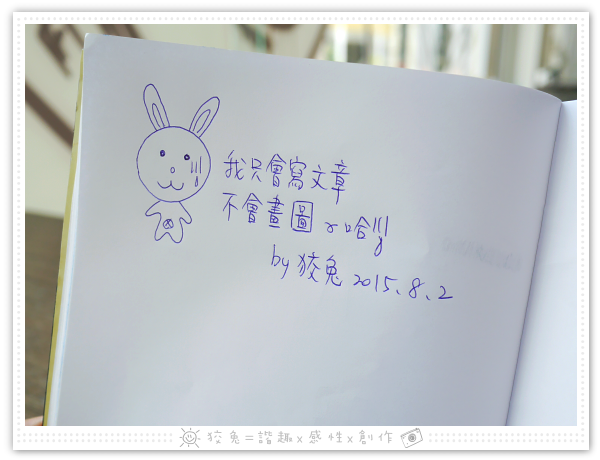 我只會寫文章
不會畫圖 ~哈
by 狡兔 2015、8、2
狡兔=諧趣x感性x創作